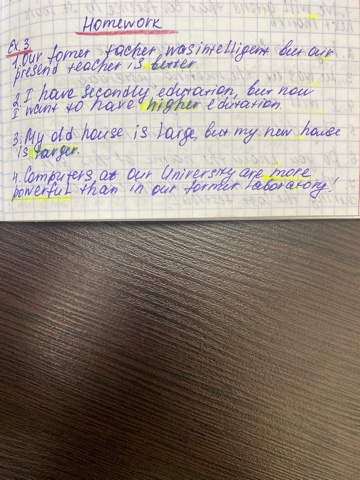 Homework
Ex.3
1. Our fomer tacher, was intelligent but our
presend teacher is better
2. I have secondly eduration, but now
I want to have higher eduration
3. My old house is large, but my new house
is larger.
4. Computers at our University are more
powerful than in our former laboratory!